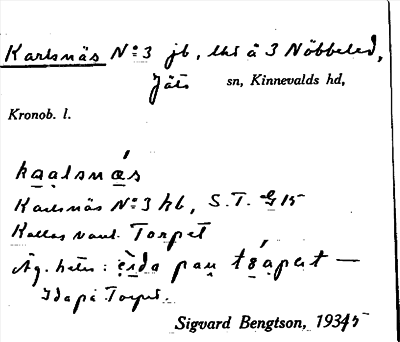 Karlsnäs No 3 jb, lht å 3 Nöbbeled,
Jäts sn, Kinnevalds hd,
Kronob. l.
kaalsnäs
Karlsnäs No 3 hb, S.T. G 15
Kallas vanl. Torpet
Äg. heter: ida pau
Ida på Torpet.
Sigvard Bengtson, 1934